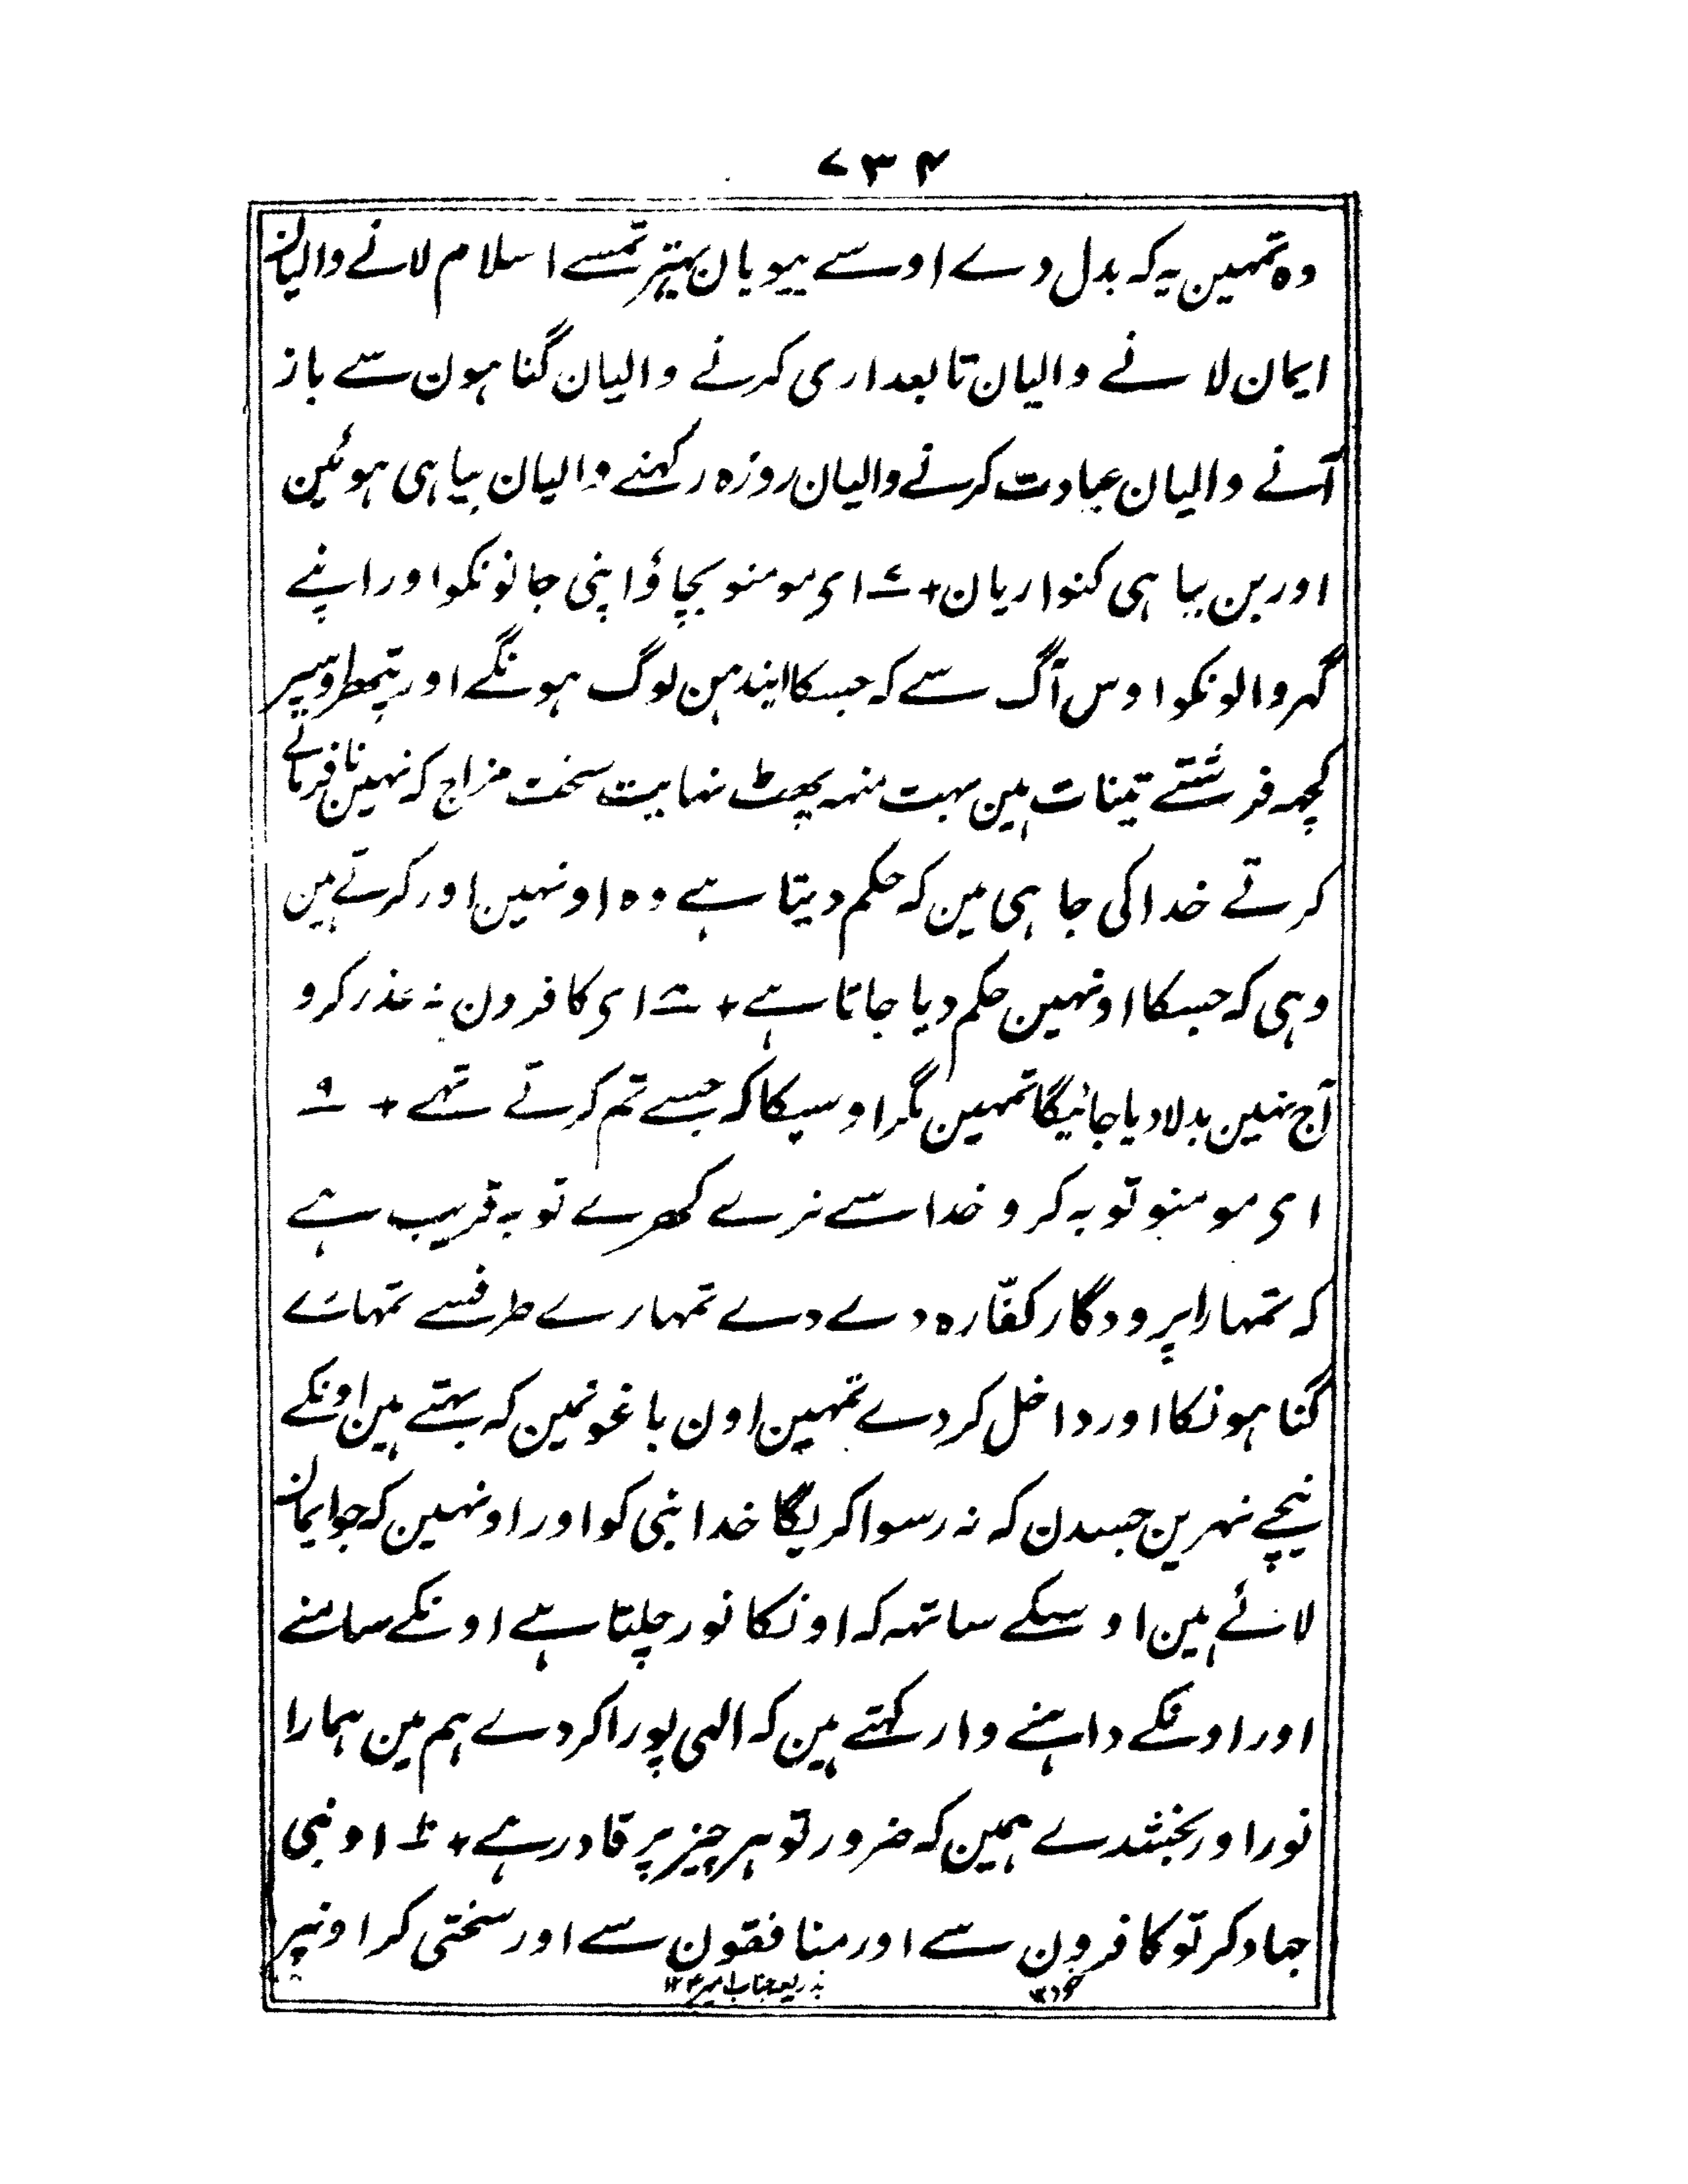 ۷۳۴
وہ تمہین یہ کہ بدل دے اوسے بیبیان بہتر تمسے اسلام لانے والیان
ایمان لانے والیان تابعداری کرنے والیان گناہون سے باز
آنے والیان عبادت کرنے والیان روزہ رکہنے والیان بیاہی ہوئین
اور بن بیاہی کنواریان + ۷ ای مومنو بچاؤ اپنی جانونکو اور اپنے
گہروالونکو اوس آگ سے کہ جسکا ایندہن لوگ ہونگے اور پتھر اوسپر
کچہہ فرشتے تینات ہین بہت منہہ پھٹ نہایت سخت مزاج کہ نہین نافرمانے
کرتے خدا کی جا ہی مین کہ حکم دیتا ہے وہ اونہین اور کرتے ہین
وہی کہ جسکا اونہین حکم دیا جاتا ہے + ۸ ای کافرون نہ عذر کرو
آج نہین بدلا دیا جائیگا تمہین مگر اوسیکا کہ جسے تم کرتے تہے + ۹
ای مومنو توبہ کرو خدا سے نرے کھرے توبہ قریب ہے
کہ تمہارا پرودگار کفّارہ دے دے تمہارے طرفسے تمہارے
گناہونکا اور داخل کردے تمہین اون باغونمین کہ بہتے ہین اونکے
نیچے نہرین جسدن کہ نہ رسوا کریگا خدا نبی کو اور اونہین کہ جو ایمان
لائے ہین اوسکے ساتہہ کہ اونکا نور چلتا ہے اونکے سامنے
اور اونکے داہنے وار کہتے ہین کہ الہی پورا کردے ہم مین ہمارا
نور اور بخشدے ہمین کہ ضرور تو ہر چیز پر قادر ہے + ۱۰ او نبی
جہاد کر تو کافرون سے اور منافقون سے اور سختی کر اونپر
بذریعہ جناب امیر ۱۲